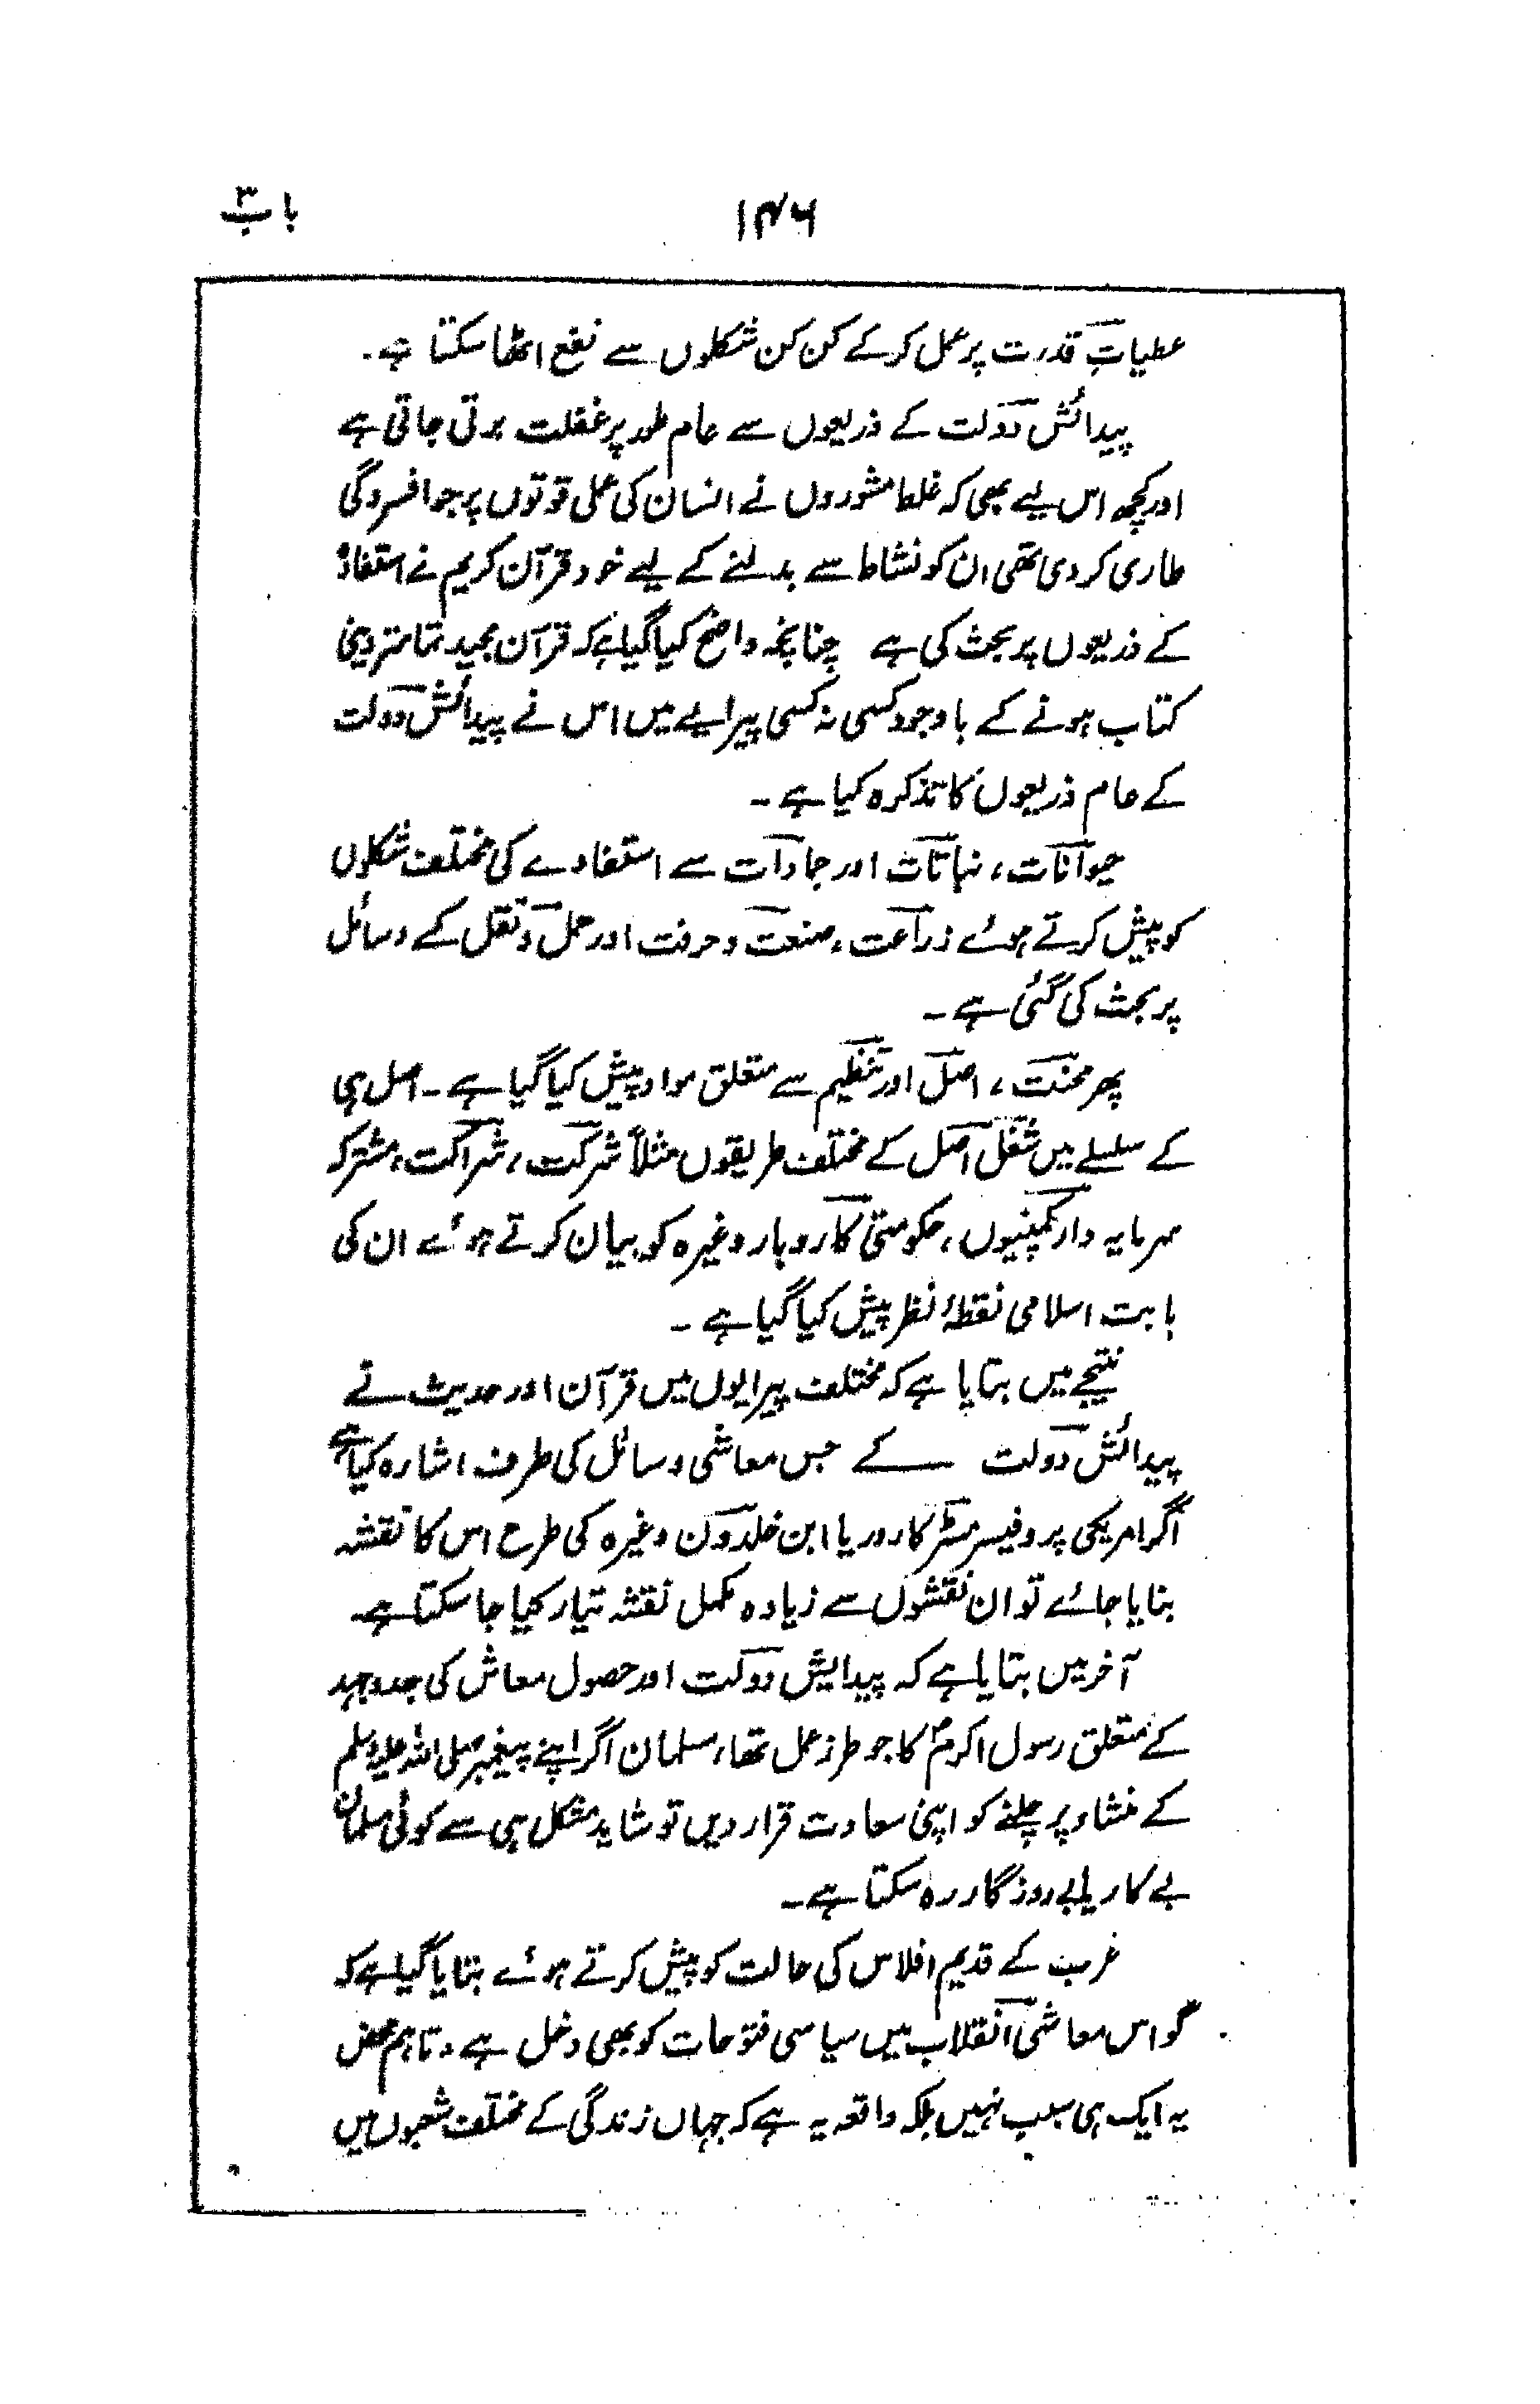 باب ۳
۱۴۶
عطیاتِ قدرت پر عمل کر کے کن کن شکلوں سے نفع اٹھا سکتا ہے۔
پیدائش دولت کے ذریعوں سے عام طور پر غفلت برتی جاتی ہے
اور کچھ اس لیے بھی کہ غلط مشوروں نے انسان کی عملی قوتوں پر جو افسردگی
طاری کر دی تھی ان کو نشاط سے بدلنے کے لیے خود قرآن کریم نے استفادہ
کے ذریعوں پر بحث کی ہے چنانچہ واضح کیا گیا ہے کہ قرآن مجید تمامتر دینی
کتاب ہونے کے باوجود کسی نہ کسی پیرایے میں اس نے پیدائش دولت
کے عام ذریعوں کا تذکرہ کیا ہے۔
حیوانات، نباتات اور جمادات سے استفادے کی مختلف شکلوں
کو پیش کرتے ہوئے زراعت، صنعت و حرفت اور حمل و نقل کے وسائل
پر بحث کی گئی ہے۔
پھر محنت، اصل اور تنظیم سے متعلق مواد پیش کیا گیا ہے۔ اصل ہی
کے سلسلے میں شغل اصل کے مختلف طریقوں مثلاً شرکت، شراکت، مشترکہ
سرمایہ دار کمپنیوں، حکومتی کاروبار وغیرہ کو بیان کرتے ہوئے ان کی
بابت اسلامی نقطۂ نظر پیش کیا گیا ہے۔
نتیجے میں بتایا ہے کہ مختلف پیرایوں میں قرآن اور حدیث نے
پیدائش دولت کے جس معاشی وسائل کی طرف اشارہ کیا ہے
اگر امریکی پروفیسر مسٹر کارور یا ابن خلدون وغیرہ کی طرح اس کا نقشہ
بنایا جائے تو ان نقشوں سے زیادہ مکمل نقشہ تیار کیا جا سکتا ہے۔
آخر میں بتایا ہے کہ پیدایش دولت اور حصول معاش کی جدوجہد
کے متعلق رسول اکرمؐ کا جو طرز عمل تھا، مسلمان اگر اپنے پیغمبر صلی اللہ علیہ وسلم
کے منشاء پر چلنے کو اپنی سعادت قرار دیں تو شاید مشکل ہی سے کوئی مسلمان
بے کار یا بے روزگار رہ سکتا ہے۔
عرب کے قدیم افلاس کی حالت کو پیش کرتے ہوئے بتایا گیا ہے کہ
گو اس معاشی انقلاب میں سیاسی فتوحات کو بھی دخل ہے، تاہم محض
یہ ایک ہی سبب نہیں بلکہ واقعہ یہ ہے کہ جہاں زندگی کے مختلف شعبوں میں